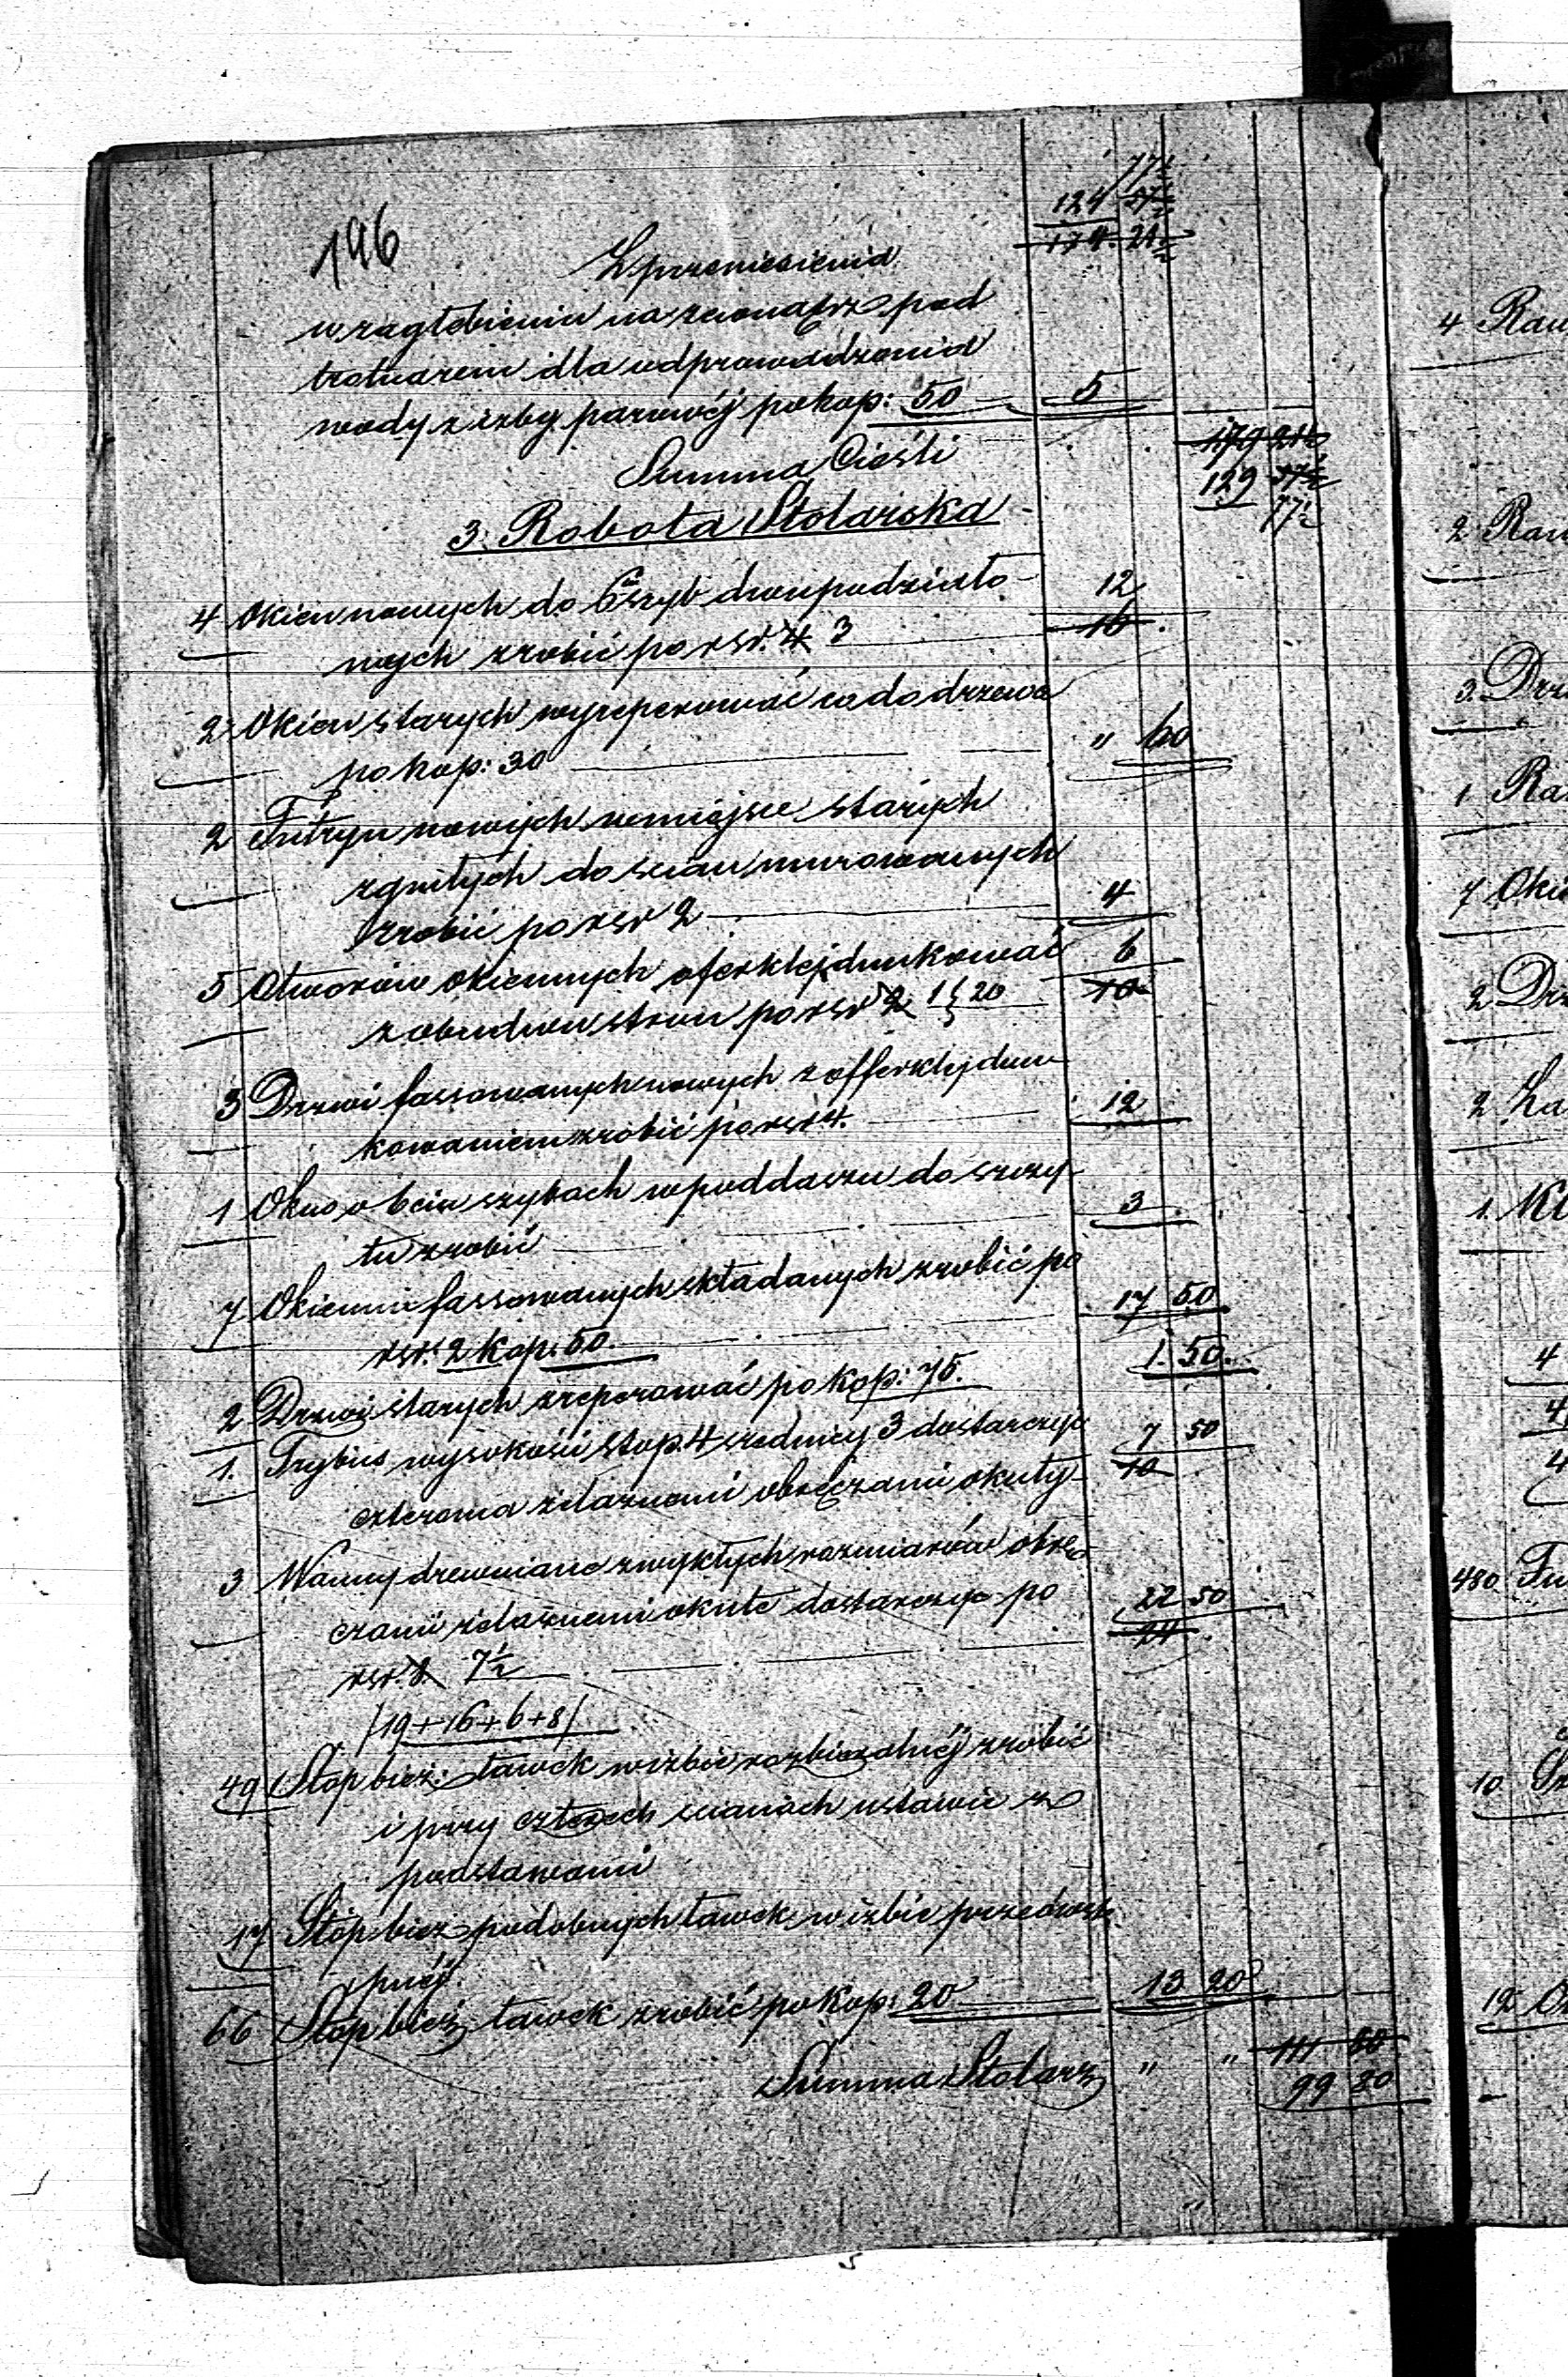 196
77½
124 57½
174. 21½
Z przeniesienia
w zagłębieniu na zewnątrz pod
trotuarem i dla odprowadzenia
wody z izby parowéj po kop: 50 5
Summa Cieśli 179 21½
129 57½
77½
3. Robota Stolarska
4 Okien nowych do 6 szyb dwupodziało- 12
wych zrobić po rsr. 4 3 16
2 Okien starych wyreperować co do drzewa
po kop: 30 " 60
2 Futryn nowych w miejsce starych
zgniłych do scian murowanych
zrobić po rsr 2 4
5 Otworów okiennych oferklejdunkować 6
z obudwu stron po rsr 2 1 20 10
3 Drzwi fassowanych nowych z offerklejdun-
kowaniem zrobić po rsr 4. 12
1 Okno o 6ciu szybach w poddaszu do szczy-
tu zrobić 3
7 Okiennic fassowanych składanych zrobić po
rsr. 2 kop. 50. 17 50
2 Drzwi starych zreperować po kop: 75. 1. 50.
1. Trybus wysokości stop. 4 srednicy 3 dostarczyć 7 50
czterema żelaznemi obręczami okuty 10
3 Wanny drewniane zwykłych rozmiarów obrę-
czami żelaznemi okute dostarczyć po 22 50
rsr. 8. 7½ 24
/19+16+6+8/
49 Stop bież: ławek w izbie rozbieralnéj zrobić
i przy czterech scianach ustawić z
podstawami
17 Stóp bież podobnych ławek w izbie
66 Stop bież ławek zrobić po kop: 20 13 20
Summa Stolarz " " 111 80
99 80
4 Raw
2 Ram
3 Drz
1 Ra
7 Oki
2 Drz
2 Za
1. Kl
4
4
4
480
10
12